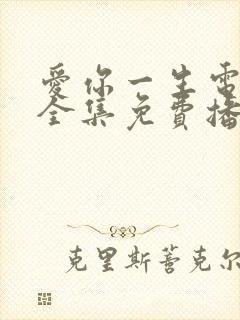 愛你一生電
全集免費播
克里斯蒈克尔